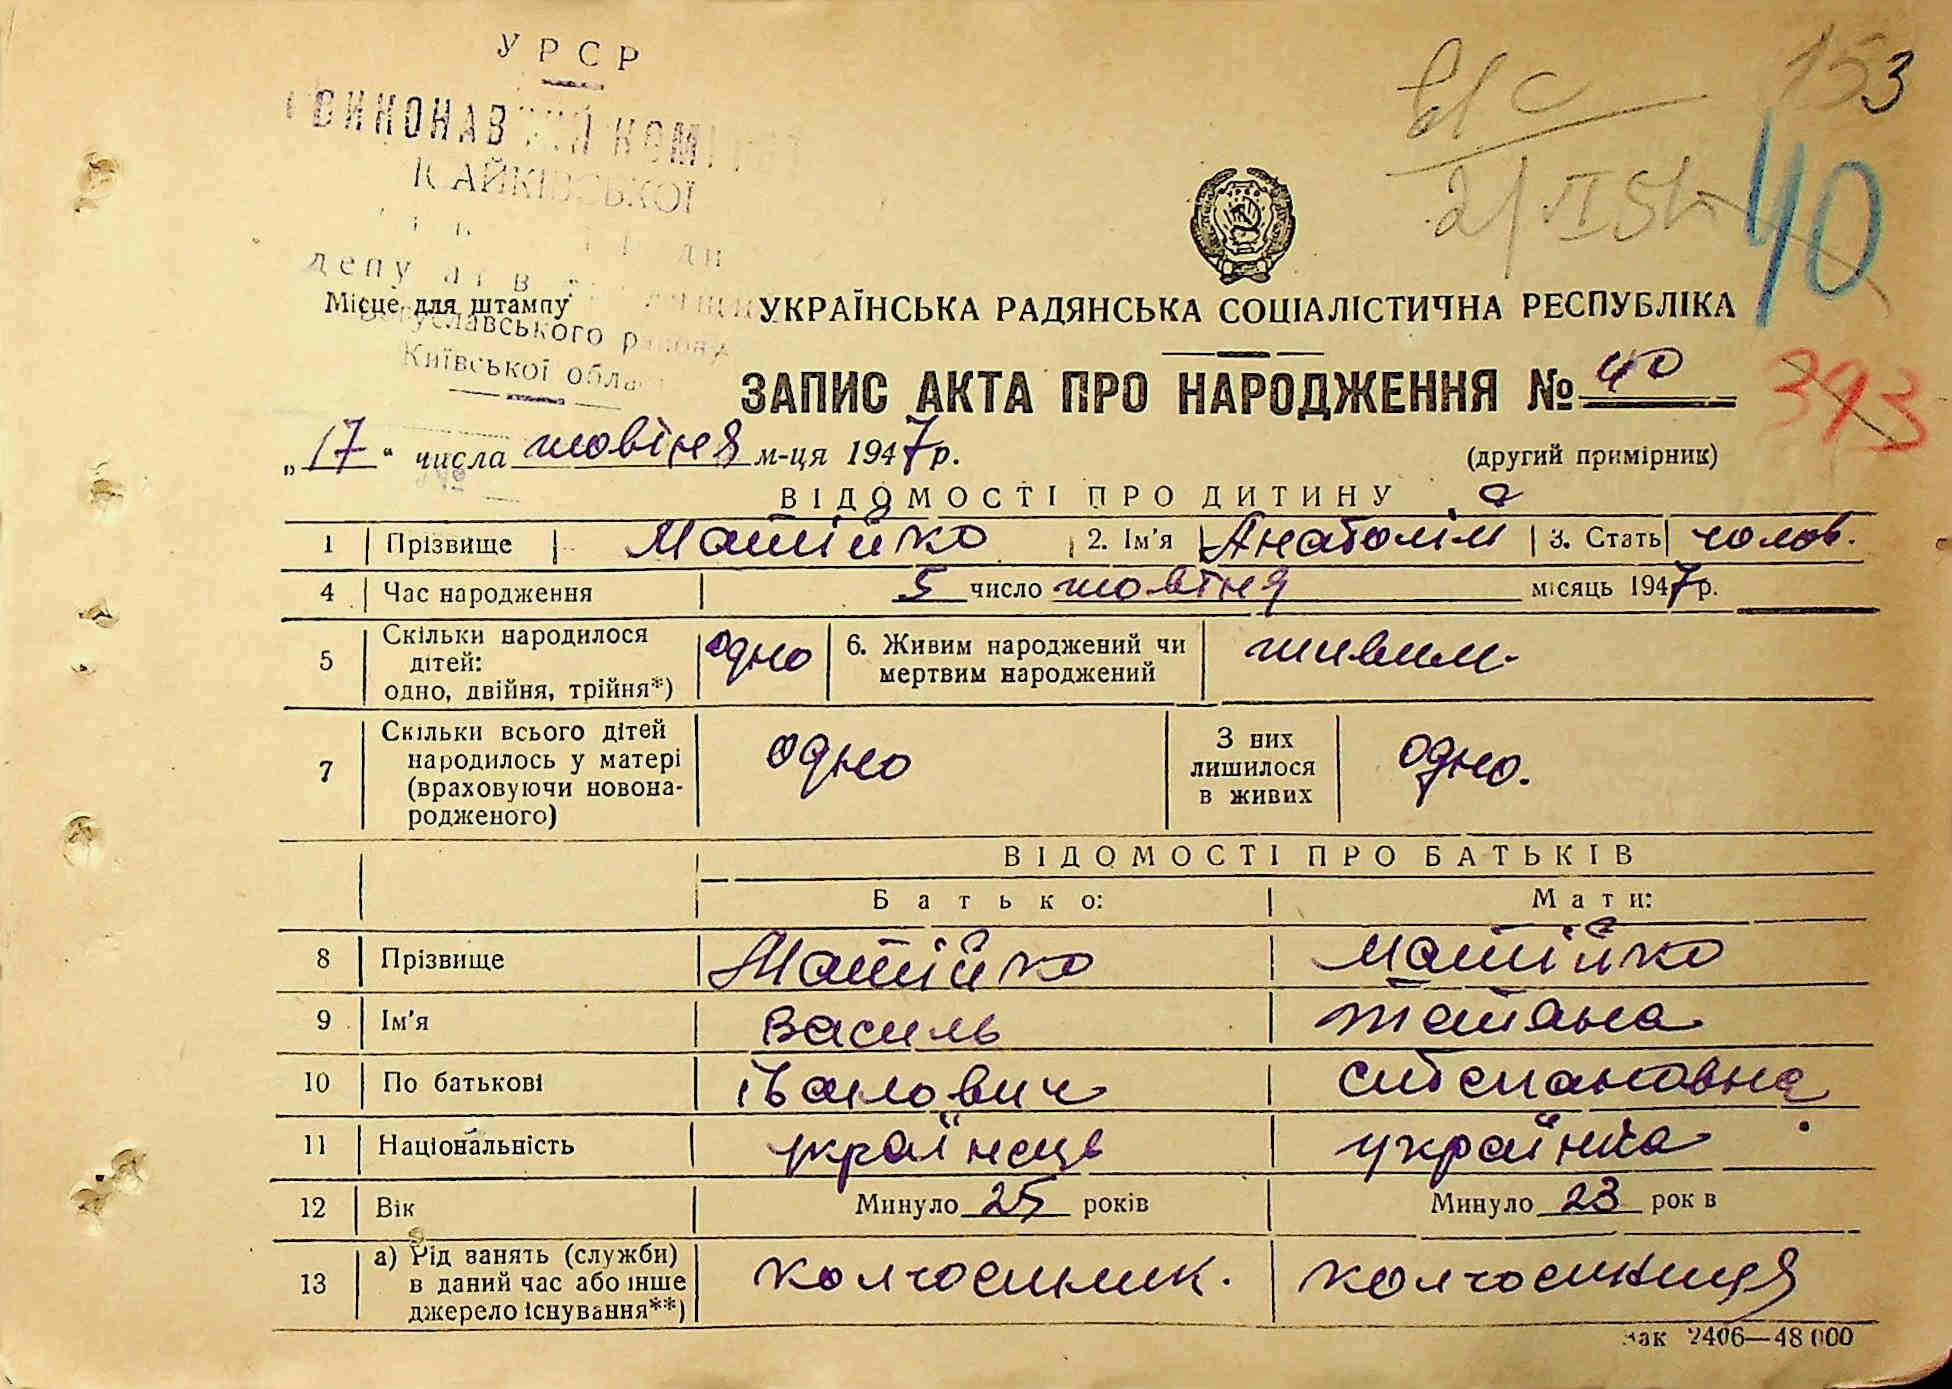 УРСР
ВИКОНАВЧИЙ КОМІТЕТ
ІСАЙКІВСЬКОЇ
депутатів трудящих
Богуславського району
Київської області
153
40
2/VI 51
393
Місце для штампу
УКРАЇНСЬКА РАДЯНСЬКА СОЦІАЛІСТИЧНА РЕСПУБЛІКА
ЗАПИС АКТА ПРО НАРОДЖЕННЯ № 40
„17" числа жовтня м-ця 1947 р.
(другий примірник)
ВІДОМОСТІ ПРО ДИТИНУ
1 Прізвище Матійко 2. Ім'я Анатолій 3. Стать чолов.
4 Час народження 5 число жовтня місяць 1947 р.
5 Скільки народилося дітей: одно, двійня, трійня*) одно 6. Живим народжений чи мертвим народжений живим.
7 Скільки всього дітей народилось у матері (враховуючи новонародженого) одно З них лишилося в живих одно.
ВІДОМОСТІ ПРО БАТЬКІВ
Батько: Мати:
8 Прізвище Матійко Матійко
9 Ім'я Василь Татяна
10 По батькові Іванович Степановна
11 Національність українець українка
12 Вік Минуло 25 років Минуло 23 рок в
13 а) Рід занять (служби) в даний час або інше джерело існування**) колгоспник. колгоспниця
Зак 2406—48 000